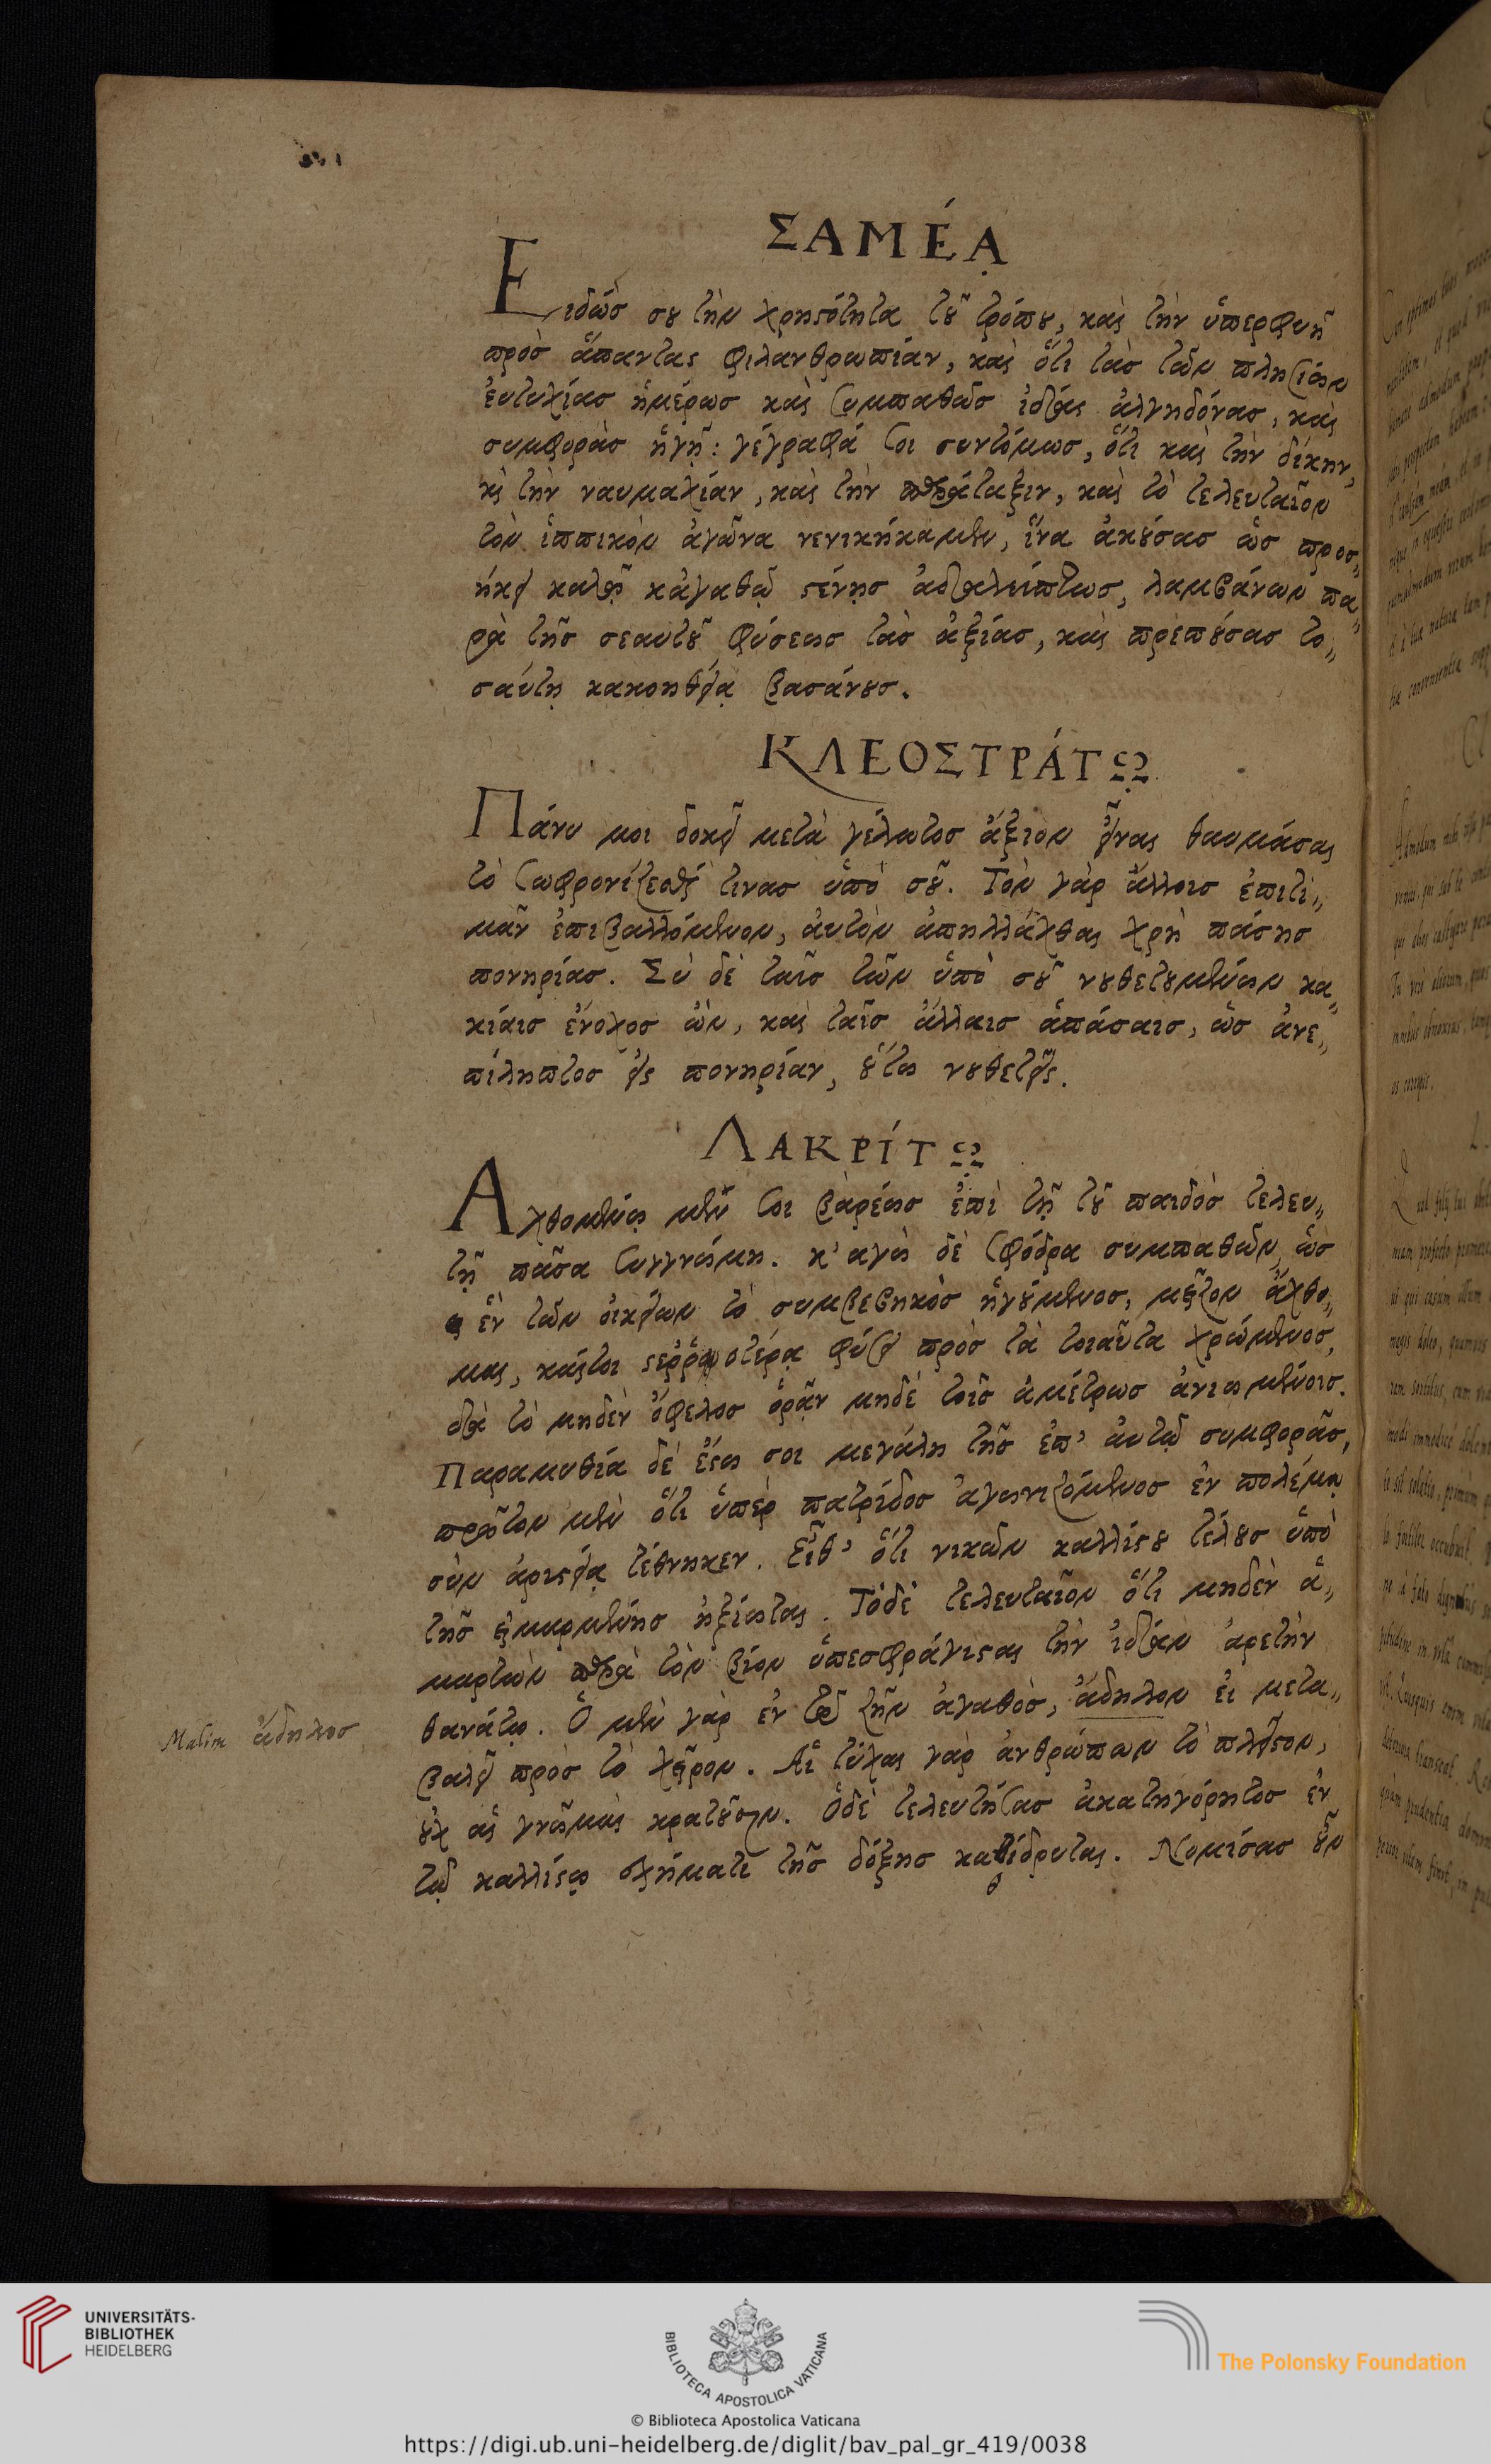 ΣΑΜΈᾼ
Ειδώσ σου τὴν χρηστότητα τοῦ τρόπου, καὶ τὴν ὑπερφυῆ
πρὸσ ἅπαντας φιλανθρωπίαν, καὶ ὅτι τὰσ τῶν πλησίων
ἐυτυχίασ ἡμέρωσ καὶ συμπαθῶσ ἰδίας ἀλγηδόνασ, καὶ
συμφορὰσ ἡγῇ: γέγραφά σοι συντόμωσ, ὅτι καὶ τὴν δίκην,
κὶ τὴν ναυμαχίαν, καὶ τὴν παράταξιν, καὶ τὸ τελευταῖον
τὸν ἱππικὸν ἀγῶνα νενικήκαμεν, ἵνα ἀκούσασ ὡσ προσ„
ήκει καλῷ κἀγαθῷ στένῃσ ἀδιαλείπτωσ, λαμβάνων πα„
ρὰ τῆσ σεαυτοῦ φύσεωσ τὰσ ἀξίασ, καὶ πρεπούσασ το„
σαύτῃ κακοηθείᾳ βασάνουσ.
ΚΛΕΟΣΤΡΆΤῼ
Πάνυ μοι δοκεῖ μετὰ γέλωτοσ ἄξιον εἶναι θαυμάσαι
τὸ σωφρονίζεσθαί τινασ ὑπὸ σοῦ. Τὸν γὰρ ἄλλοισ ἐπιτι„
μᾶν ἐπιβαλλόμενον, ἀυτὸν ἀπηλλάχθαι χρὴ πάσησ
πονηρίασ. Σὺ δὲ ταῖσ τῶν ὑπὸ σοῦ νουθετουμένων κα„
κίαισ ἔνοχοσ ὢν, καὶ ταῖσ ἄλλαισ ἁπάσαισ, ὡσ ἀνε„
πίληπτοσ εἰς πονηρίαν, οὕτω νουθετεῖς.
ΛΑΚΡΊΤῼ
Αχθομένῳ μέν σοι βαρέωσ ἐπὶ τῇ τοῦ παιδὸσ τελευ„
τῇ πᾶσα συγγνώμη. κ᾿ αγὼ δὲ σφόδρα συμπαθῶν, ὡσ
ἓν τῶν ὀικείων τὸ συμβεβηκὸσ ἡγούμενοσ, μεῖζον ἄχθο„
μαι, καίτοι στερῤοτέρᾳ φύσει πρὸσ τὰ τοιαῦτα χρώμενοσ,
διὰ τὸ μηδὲν ὄφελοσ ὁρᾷν μηδὲ τοῖσ ἀμέτρωσ ἀνιωμένοισ.
Παραμυθία δὲ ἔστω σοι μεγάλη τῆσ ἐπ᾿ ἀυτῷ συμφορᾶσ,
πρῶτον μὲν ὅτι ὑπὲρ πατρίδοσ ἀγωνιζόμενοσ ἐν πολέμῳ
σὺν ἀριστείᾳ τέθνηκεν. Εἶθ᾿ ὅτι νικῶν καλλίστου τέλουσ ὑπὸ
τῆσ εἱμαρμένησ ἠξίωται. Τόδὲ τελευταῖον ὅτι μηδὲν ἁ„
μαρτὼν παρὰ τὸν βίον ὑπεσφράγισται τὴν ἰδίαν ἀρετὴν
θανάτῳ. Ὁ μὲν γὰρ ἐν τῷ ζῆν ἀγαθὸσ, ἄδηλον ἐι μετα„
βαλεῖ πρὸσ τὸ χεῖρον. Αἱ τύχαι γὰρ ἀνθρώπων τὸ πλεῖστον,
οὐχ αἱ γνῶμαι κρατοῦσιν. Ὁδὲ τελευτήσασ ἀκατηγόρητοσ ἐν
τῷ καλλίστῳ σχήματι τῆσ δόξησ κατίδρυται. Νομίσασ οὖν
θ
Malim ἄδηλοσ
UNIVERSITÄTS-
BIBLIOTHEK
HEIDELBERG
BIBLIOTECA APOSTOLICA VATICANA
The Polonsky Foundation
© Biblioteca Apostolica Vaticana
https://digi.ub.uni-heidelberg.de/diglit/bav_pal_gr_419/0038